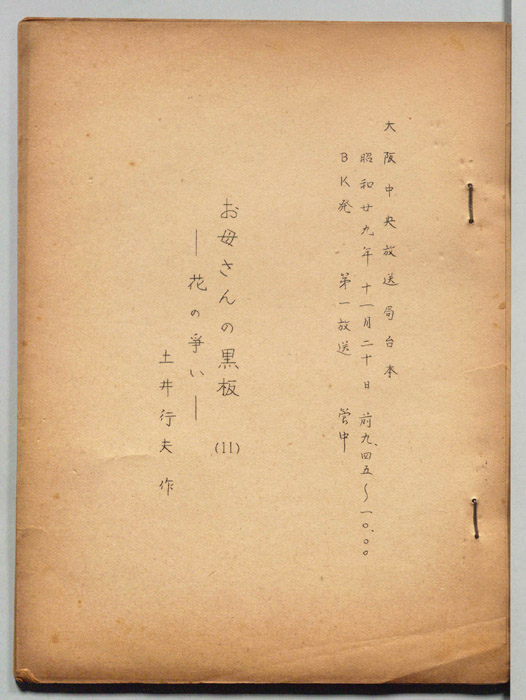 大阪中央放送局台本
昭和廿九年十一月二十日 前九、四五〜一〇、〇〇
BK発 第一放送 管中
お母さんの黒板 (11)
―花の爭い―
土井行夫 作